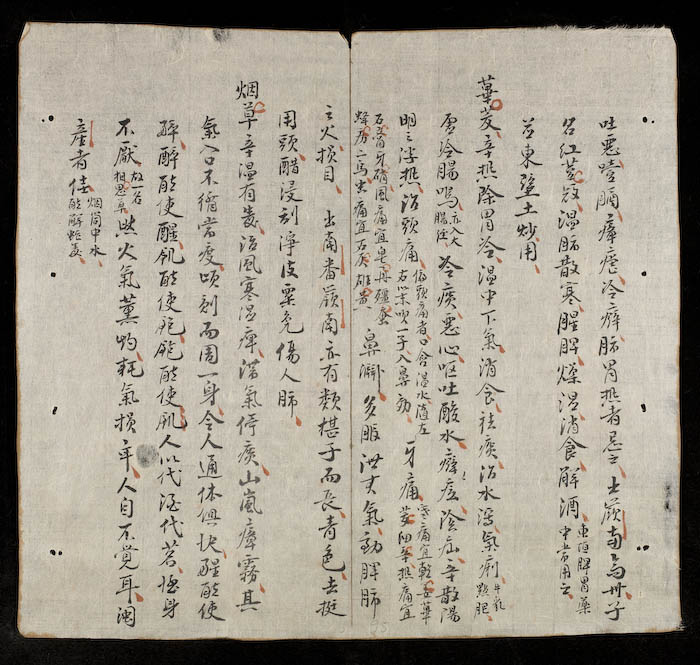 吐惡噎膈瘴瘧冷癖肺胃热者忌之出嶺南 子
名紅蔻温肺散寒醒脾燥湿消食解酒東垣脾胃藥中常用之
東壁土炒用
蓽茇辛热除胃冷温中下氣消食祛痰治水瀉氣痢牛乳點肥
虚冷腸鳴亦入大腸經冷痰惡心嘔吐酸水癖陰疝辛散陽
明之浮热治頭痛偏頭痛者口含温水随左右以末吹一子入鼻効牙痛寒痛宜乾姜蓽茇細辛热痛宜
石膏牙硝風痛宜皂角殭蚕蜂房二乌虫痛宜石灰雄黄鼻淵多服洩真氣動脾肺
之火損目出南番嶺南亦有類椹子而長青色去挺
用頭醋浸刮淨皮粟免傷人肺
烟草辛温有毒治風寒湿痺滯氣停痰山嵐瘴霧其
氣入口不循常度頃刻而周一身令人通体俱快醒能使
醉醉能使醒飢能使飽飽能使飢人以代酒代茗身
不厭故一名相思草然火氣薰灼耗氣損年人自不覚耳閩
産者佳烟筒中水能解蛇毒